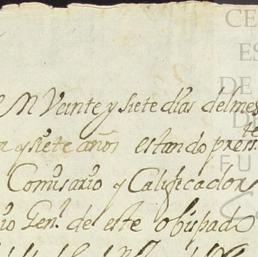 CE
ES
DE
D
FU
M Veinte y siete dias del mes
a y siete años estando pren.te
Comisario y Calificador
rio Gen.l de este obispado